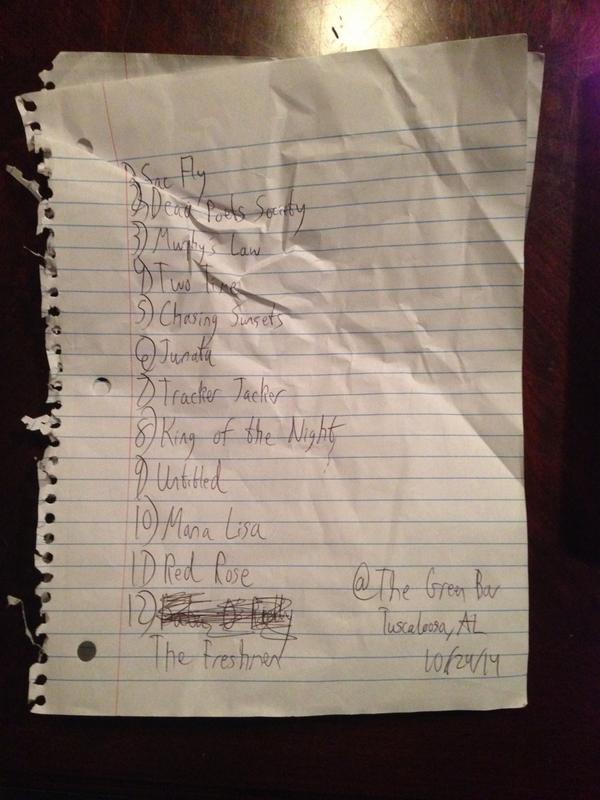 1) Sac Fly
2) Dead Poets Society
3) Murphy's Law
4) Two Time
5) Chasing Sunsets
6) Junata
7) Tracker Jacker
8) King of the Night
9) Untitled
10) Mona Lisa
11) Red Rose
12)
The Freshmen
@ The Green Bar
Tuscaloosa, AL
10/24/14